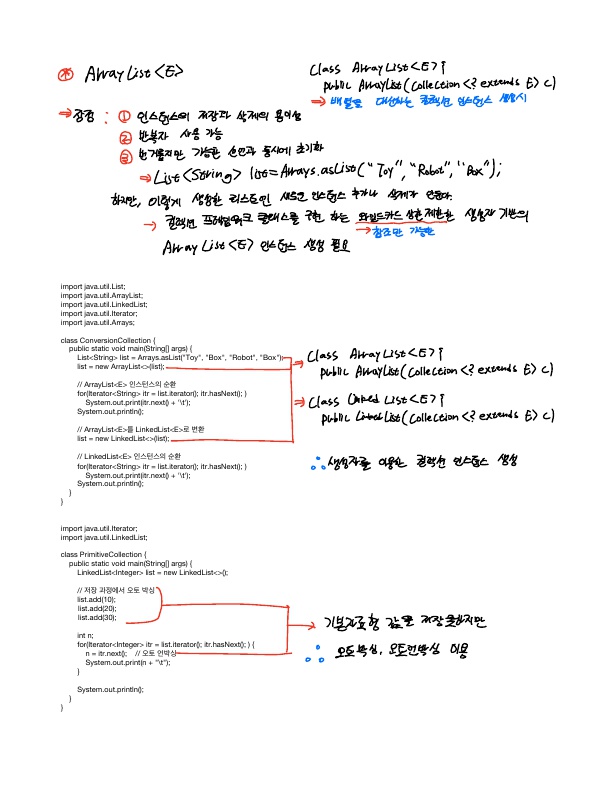 * ArrayList<E>
Class ArrayList<E>{
public ArrayList(Collection<? extends E> c)
→ 배열을 대신하는 컬렉션 인스턴스 생성시
→ 장점 : ① 인스턴스의 저장과 삭제의 용이성
② 반복자 사용 가능
③ 번거롭지만 가능한 선언과 동시에 초기화
→ List<String> list=Arrays.asList("Toy","Robot","Box");
하지만, 이렇게 생성한 리스트인 새로운 인스턴스 추가나 삭제가 안된다.
→ 컬렉션 프레임워크 클래스를 구현 하는 와일드카드 상한제한한 생성자 기반의
→ 참조만 가능한
ArrayList<E> 인스턴스 생성 필요
import java.util.List;
import java.util.ArrayList;
import java.util.LinkedList;
import java.util.Iterator;
import java.util.Arrays;
class ConversionCollection {
public static void main(String[] args) {
List<String> list = Arrays.asList("Toy", "Box", "Robot", "Box");
list = new ArrayList<>(list);
→ Class ArrayList<E>{
public ArrayList(Collection<? extends E> c)
// ArrayList<E> 인스턴스의 순환
for(Iterator<String> itr = list.iterator(); itr.hasNext(); )
System.out.print(itr.next() + '\t');
System.out.println();
→ Class Linked List<E>{
public LinkedList(Collection<? extends E> c)
// ArrayList<E>를 LinkedList<E>로 변환
list = new LinkedList<>(list);
// LinkedList<E> 인스턴스의 순환
for(Iterator<String> itr = list.iterator(); itr.hasNext(); )
System.out.print(itr.next() + '\t');
System.out.println();
}
}
∴ 생성자를 이용한 컬렉션 인스턴스 생성
import java.util.Iterator;
import java.util.LinkedList;
class PrimitiveCollection {
public static void main(String[] args) {
LinkedList<Integer> list = new LinkedList<>();
// 저장 과정에서 오토 박싱
list.add(10);
list.add(20);
list.add(30);
int n;
for(Iterator<Integer> itr = list.iterator(); itr.hasNext(); ) {
n = itr.next(); // 오토 언박싱
System.out.print(n + "\t");
}
System.out.println();
}
}
→ 기본자료형 값을 저장 못하지만
∴ 오토박싱, 오토언박싱 이용